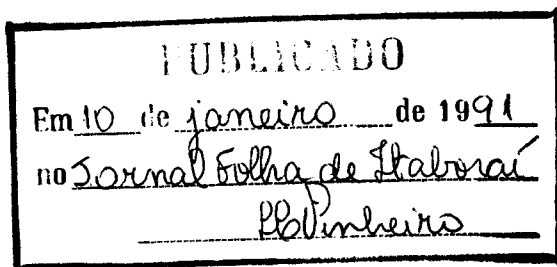 PUBLICADO
Em 10 de janeiro de 1991
no Jornal Folha de Itaboraí
Pinheiro